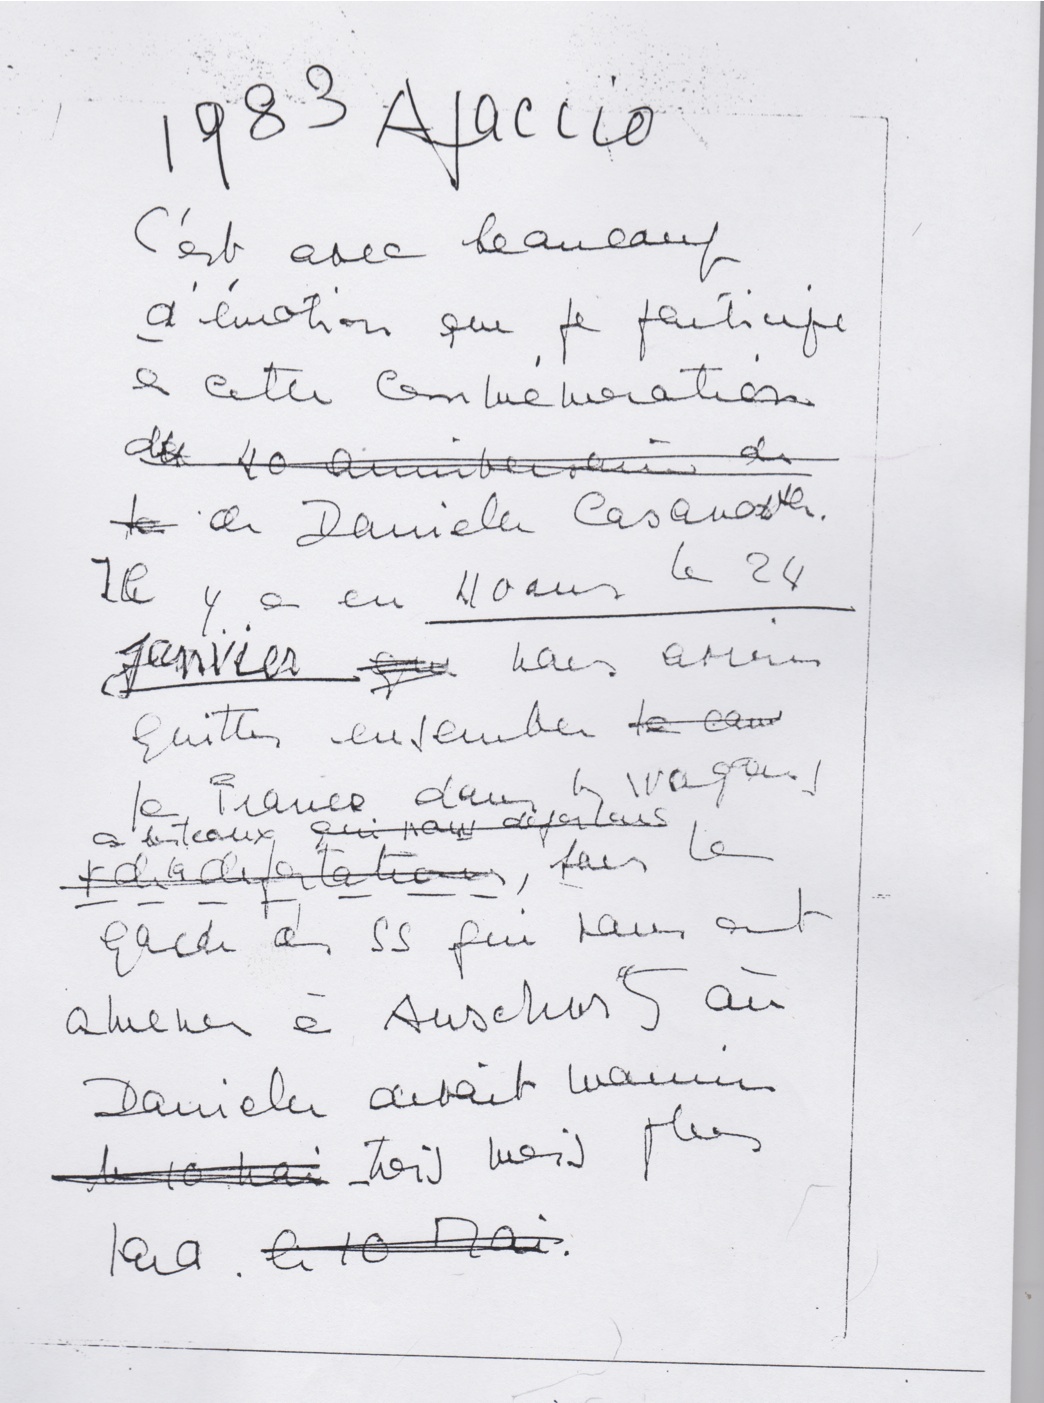 1983 Ajaccio
C'est avec beaucoup
d'émotion que je participe
a cette Commémoration
du 40 anniversaire de
la de Danielle Casanova.
Il y a eu 40 ans le 24
janvier que nous avions
quitté ensemble le cam
la France dans les wagons
a bestiaux qui nous déportons
de la déportation, sous la
garde des SS qui nous ont
amenés à Auschwitz où
Danielle devait mourir
le 10 mai trois mois plus
tard. le 10 Mai.